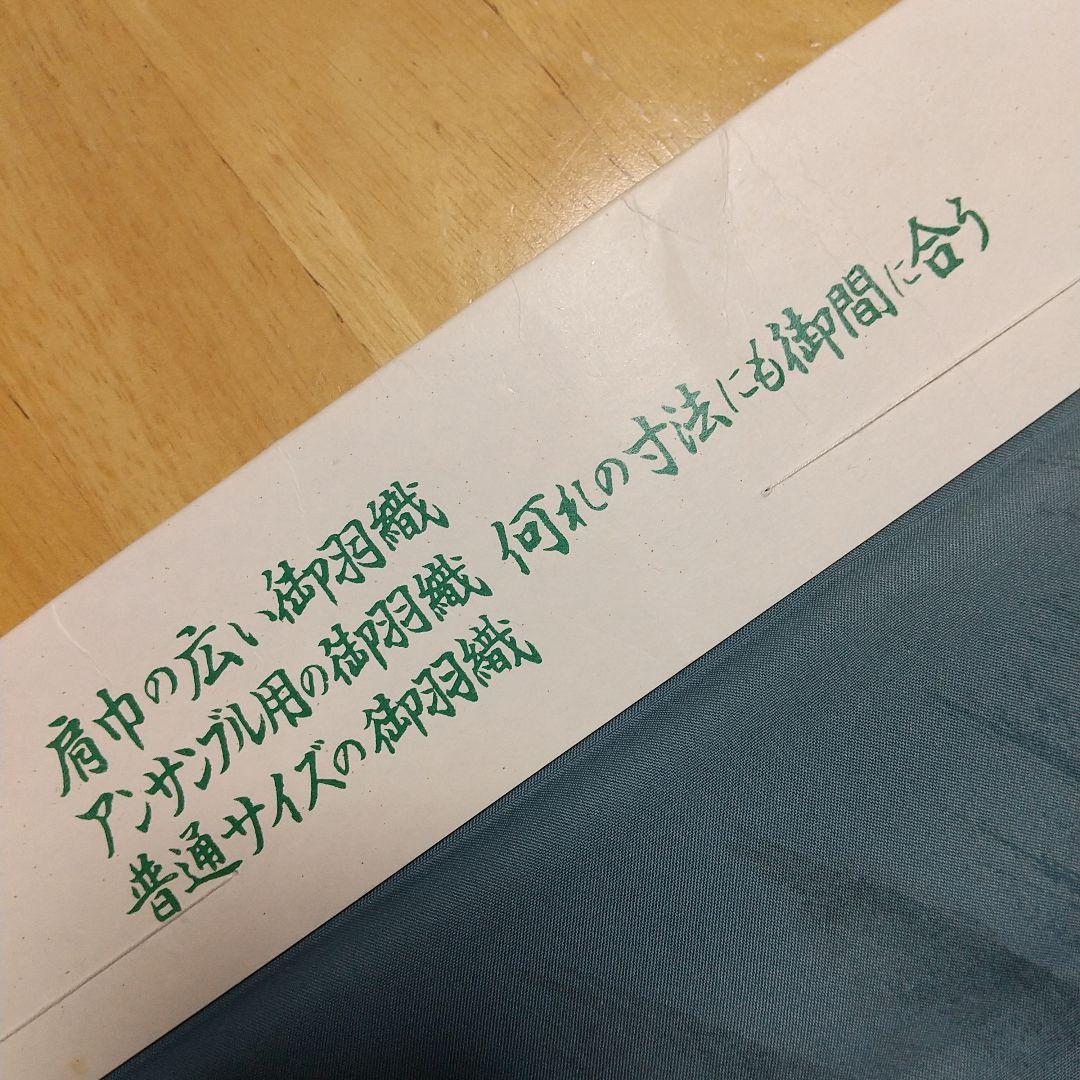 肩巾の広い御羽織
アンサンブル用の御羽織
普通サイズの御羽織
何れの寸法にも御間に合う